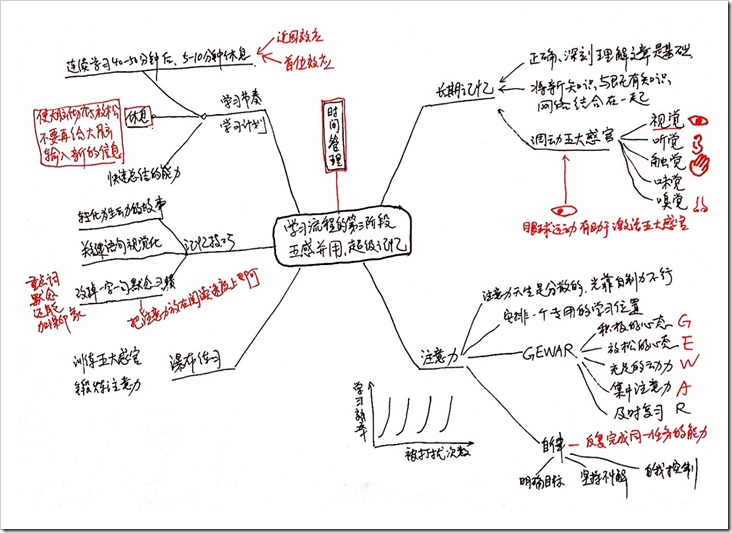 学习流程的第三阶段
五感并用、超级记忆
时间管理
学习节奏
学习计划
连续学习40-50分钟后、5-10分钟休息
近因效应
首位效应
休息
使大脑彻底放松
不要再给大脑
输入新的信息
快速总结的能力
记忆技巧
转化为生动的故事
关键语句视觉化
改掉一字一句默念习惯
重点词
默念
还能
加深印象
把注意力放在阅读速度上即可
瀑布练习
训练五大感官
锻炼注意力
长期记忆
正确、深刻理解文章是基础
将新知识、与既有知识、
网络结合在一起
调动五大感官
视觉
听觉
触觉
味觉
嗅觉
眼球运动有助于激活五大感官
注意力
注意力天生是分散的、光靠自制力不行
安排一个专用的学习位置
GEWAR
积极的心态 G
放松的心态 E
充足的动力 W
集中注意力 A
及时复习 R
自律
反复完成同一任务的能力
明确目标
坚持不懈
自我控制
学习效率
被打扰次数